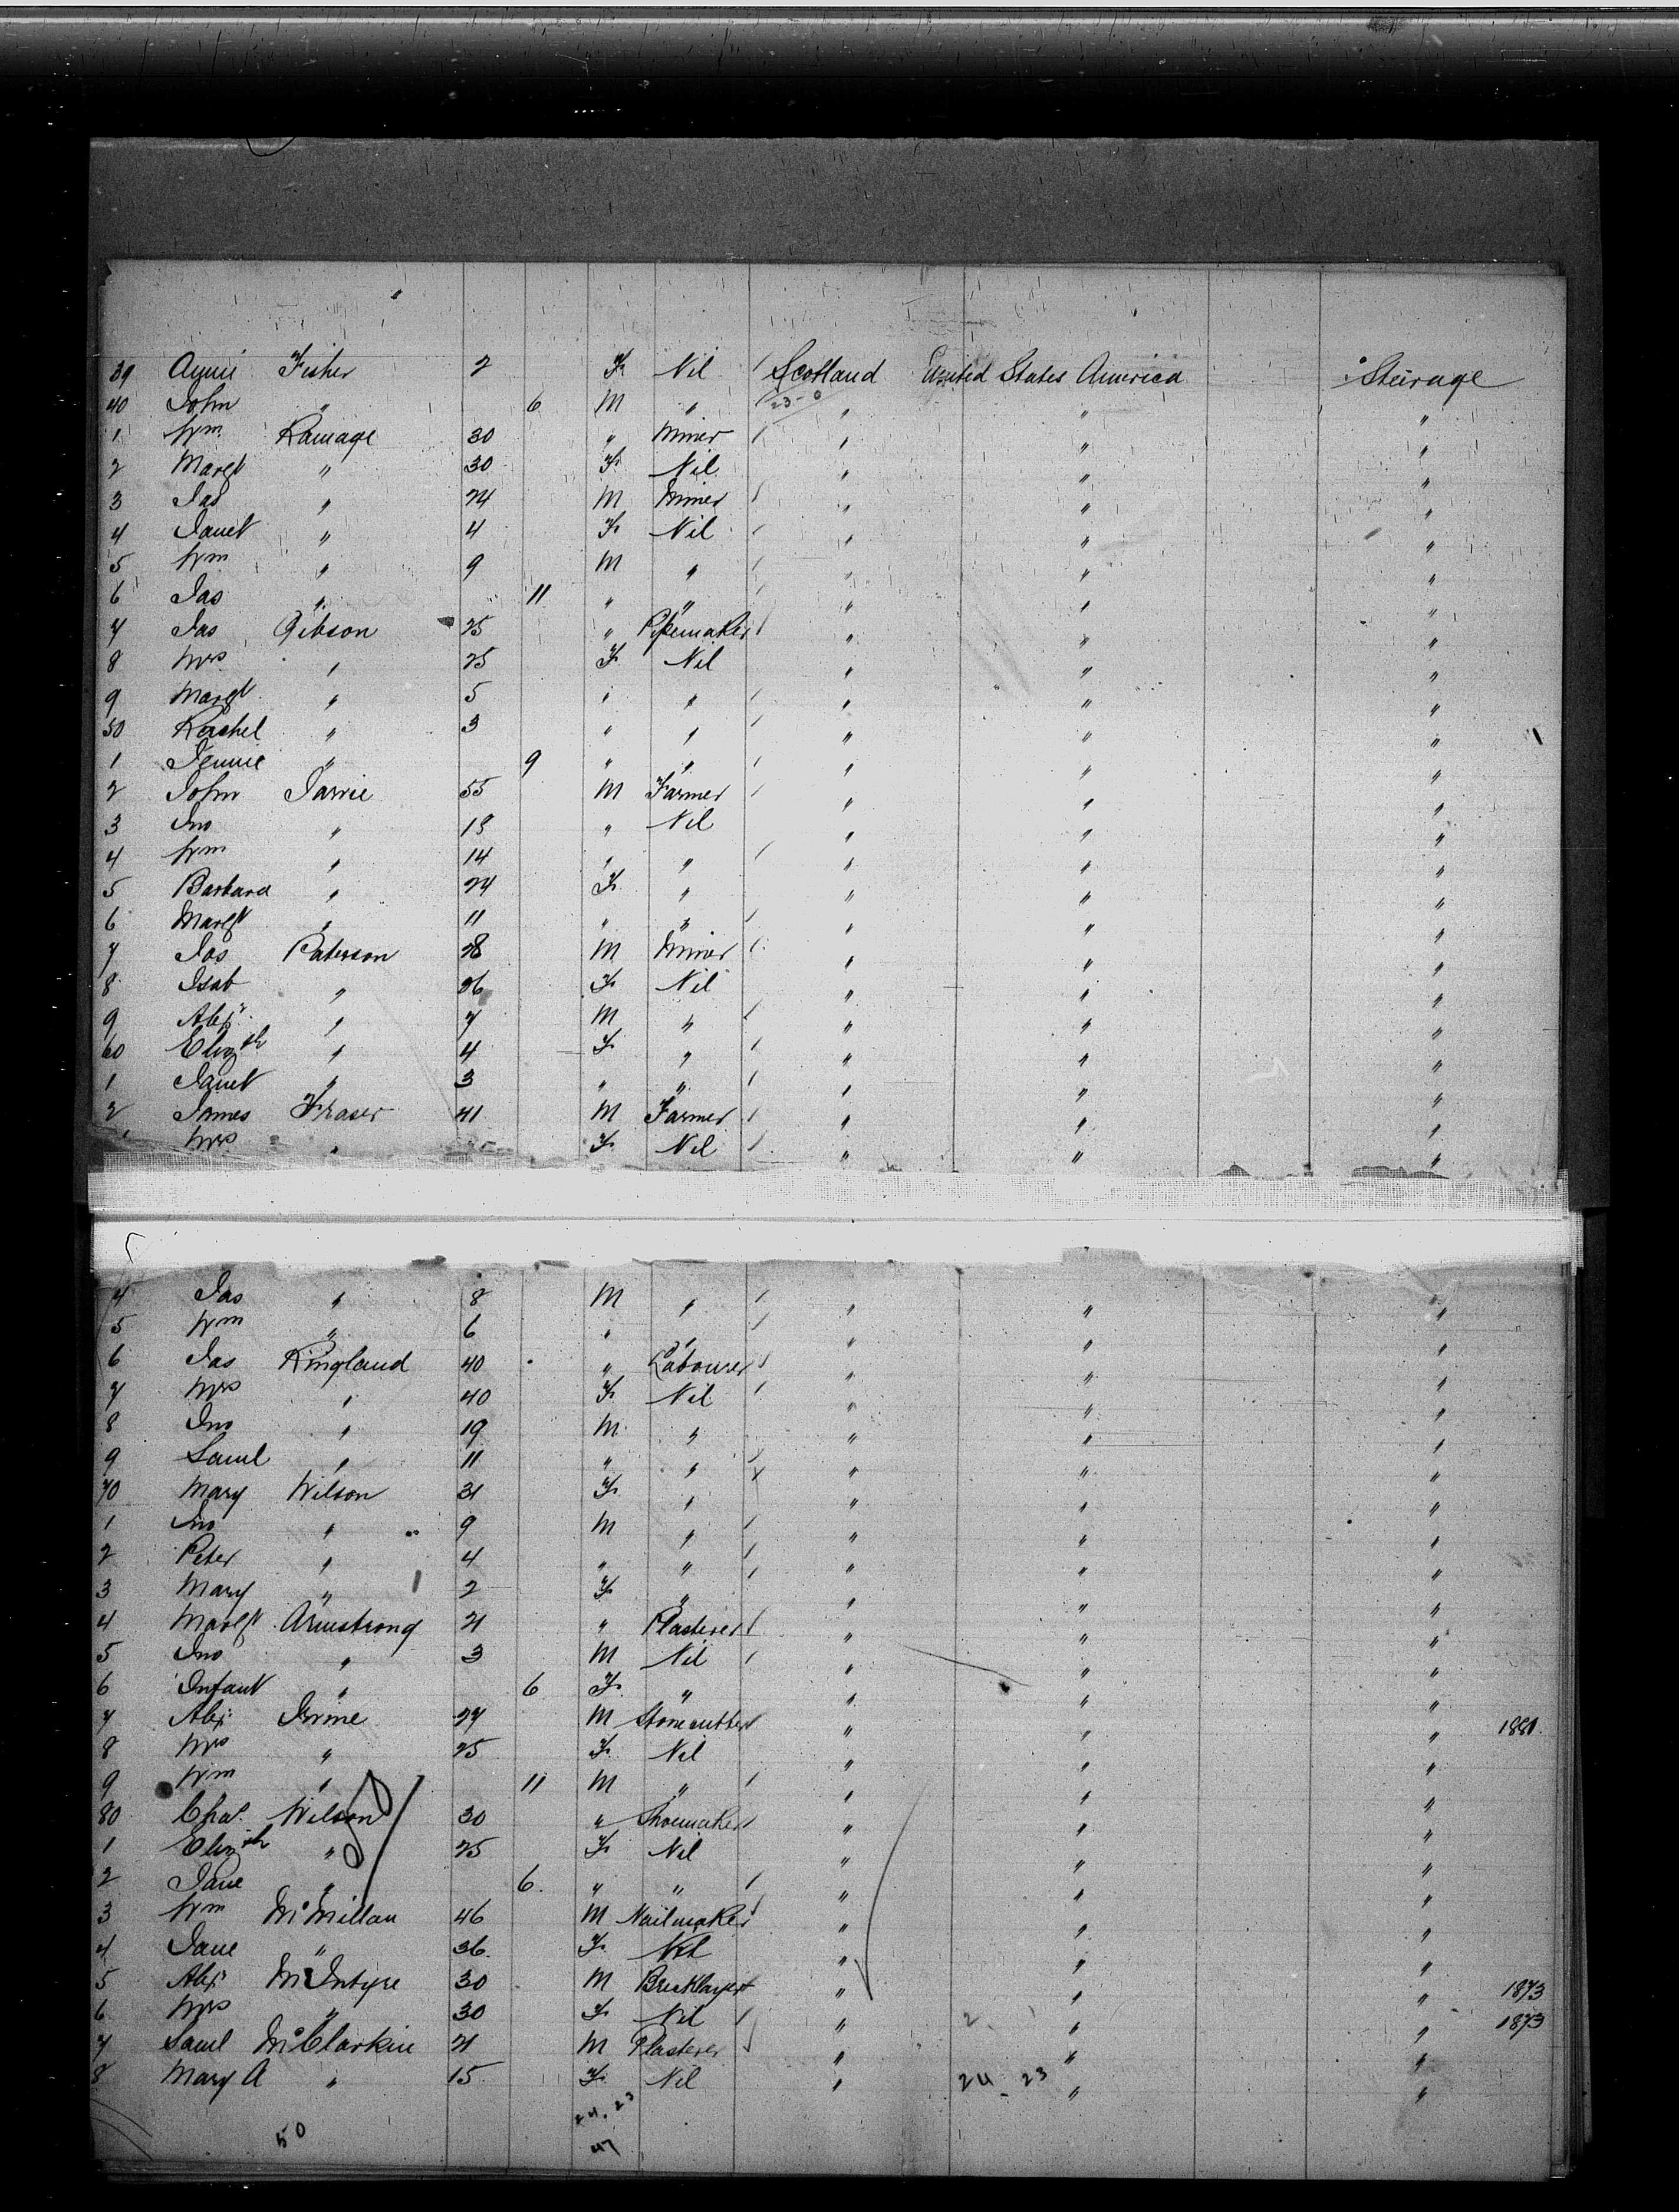 39 Annie Fisher 2 F Nil / Scotland United States America Steerage
40 John " 6 M " 23-0 " " "
1 Wm Ramage 30 " Miner / " " "
2 Margt " 30 F Nil " " "
3 Jas " 24 M Miner / " " "
4 Janet " 4 F Nil / " " "
5 Wm " 9 M " / " " "
6 Jas " 11 " " / " " "
7 Jas Gibson 25 " Pipemaker / " " "
8 Mrs " 25 F Nil " " "
9 Margt " 5 " " / " " "
50 Rachel " 3 " " / " " "
1 Jennie " 9 " " / " " "
2 John Jarvie 55 M Farmer / " " "
3 Jno " 18 " Nil " " "
4 Wm " 14 " " / " " "
5 Barbara " 24 F " " " "
6 Margt " 11 " " / " " "
7 Jas Paterson 28 M Miner / " " "
8 Isab " 26 F Nil " " "
9 Alexr " 7 M " / " " "
60 Elizth " 4 F " / " " "
1 Janet " 3 " " / " " "
2 James Fraser 41 M Farmer / " " "
Mrs " F Nil / " " "
4 Jas " 8 M " / " " "
5 Wm " 6 " " / " " "
6 Jas Kingland 40 " Labourer / " " "
7 Mrs " 40 F Nil / " " "
8 Jno " 19 M " " " "
9 Saml " 11 " " / " " "
70 Mary Wilson 31 F " x " " "
1 Jno " 9 M " / " " "
2 Peter " 4 " " / " " "
3 Mary " 2 F " / " " "
4 Margt Armstrong 21 " Plasterer / " " "
5 Jno " 3 M Nil / " " "
6 Infant " 6 F " " " "
7 Alexr Irvine 27 M Stonecutter / " " " 1881
8 Mrs " 25 F Nil " " "
9 Wm " 11 M " / " " "
80 Chas Wilson 30 " Shoemaker / " " "
1 Elizth " 25 F Nil " " "
2 Jane " 6 " " / " " "
3 Wm McMillan 46 M Nailmaker / " " "
4 Jane " 36 F Nil " " "
5 Alexr McIntyre 30 M Bricklayer " " " 1873
6 Mrs " 30 F Nil / " 2 " " 1873
7 Saml McClarkin 21 M Plasterer / " " "
8 Mary A " 15 F Nil " 24-23 " "
24.23
50 47